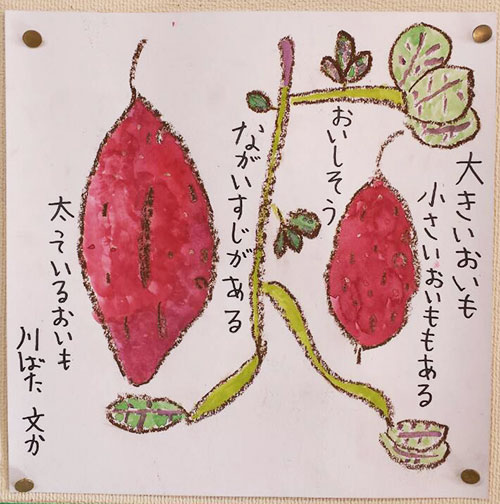 大きいおいも
小さいおいももある
おいしそう
ながいすじがある
太っているおいも
川ばた 文か